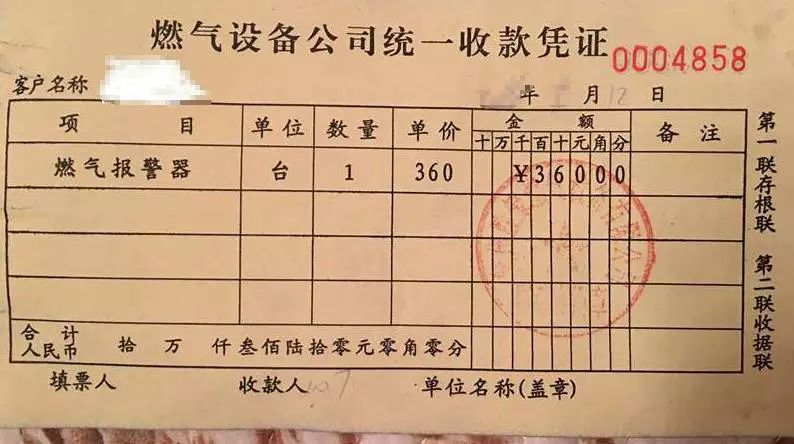 燃气设备公司统一收款凭证 0004858
客户名称 年 月 12 日
项 目 单位 数量 单价 金 额 备注
十 万 千 百 十 元 角 分
燃气报警器 台 1 360 ¥36000
合计人民币 拾 万 仟叁佰陆拾零元零角零分
填票人 收款人 单位名称(盖章)
第一联存根联 第二联收据联